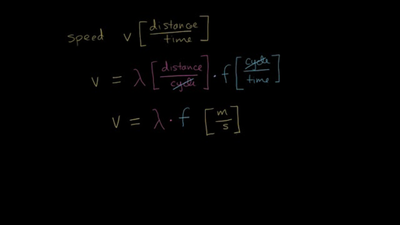 speed v [distance/time]
v = λ [distance/cycle] · f [cycle/time]
v = λ · f [m/s]